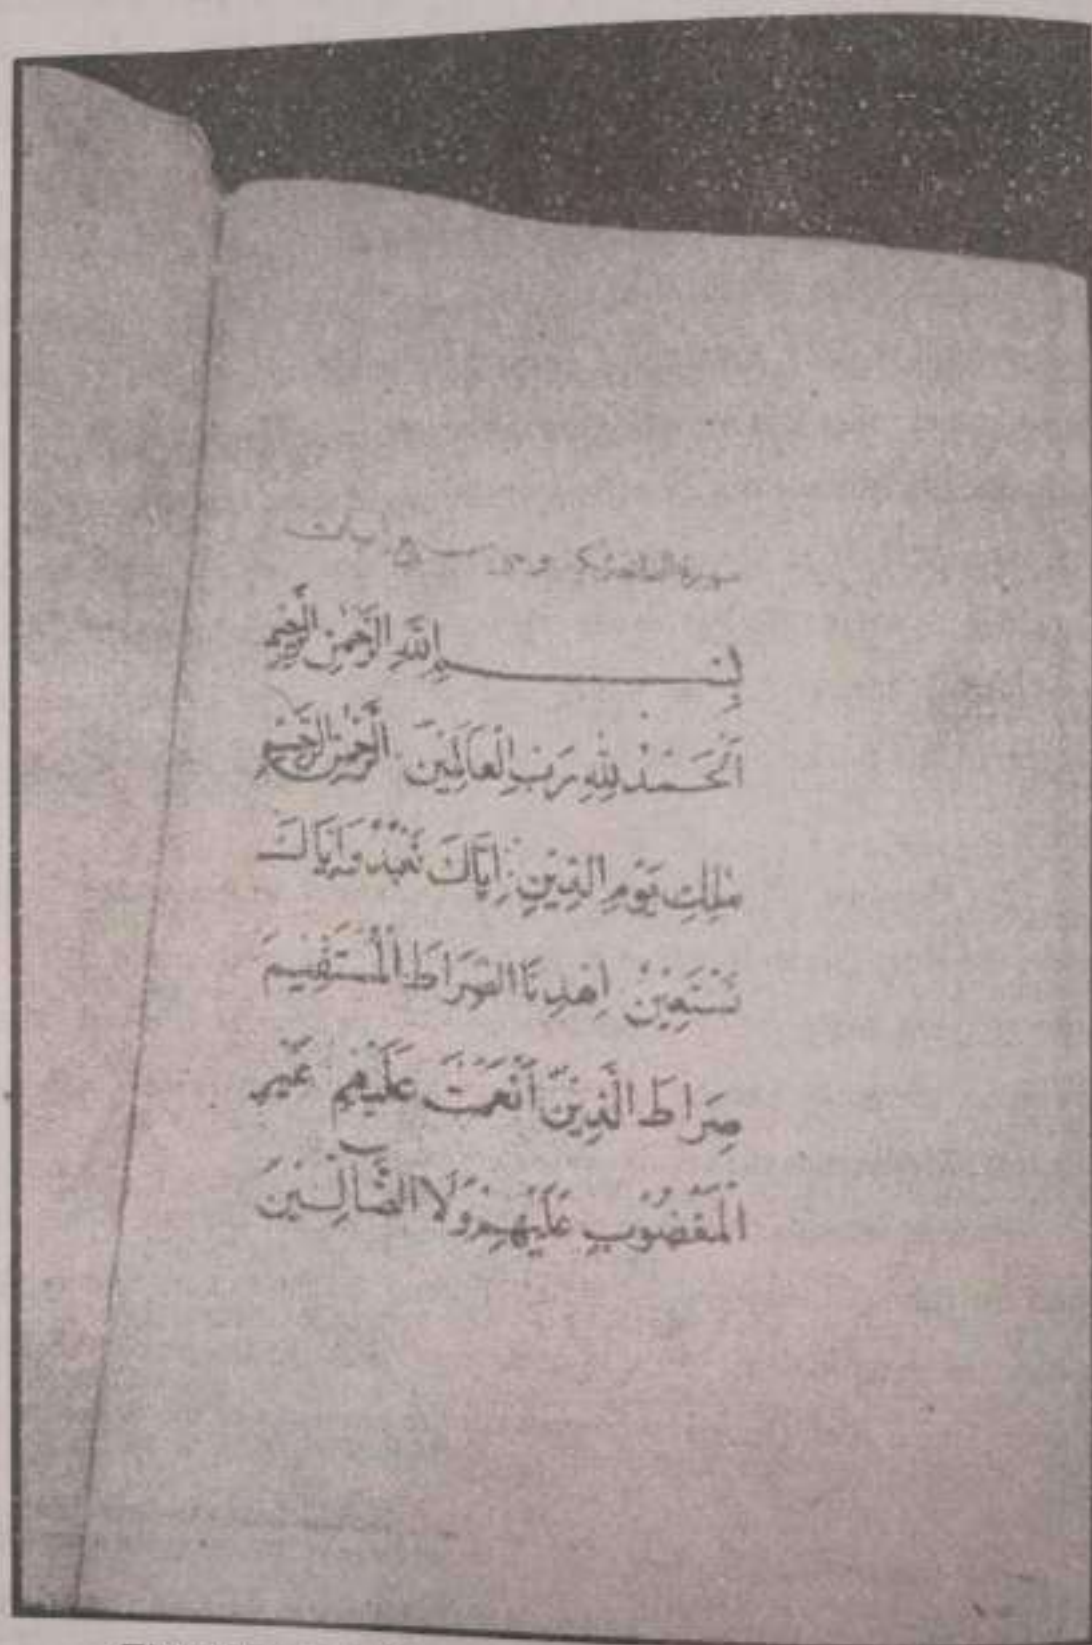 سورة الفاتحة وهي سبع آيات
بِسْمِ اللَّهِ الرَّحْمٰنِ الرَّحِيمِ
اَلْحَمْدُ لِلّٰهِ رَبِّ الْعَالَمِيْنَ الرَّحْمٰنِ الرَّحِيْمِ
مٰلِكِ يَوْمِ الدِّيْنِ اِيَّاكَ نَعْبُدُ وَاِيَّاكَ
نَسْتَعِيْنُ اِهْدِنَا الصِّرَاطَ الْمُسْتَقِيْمَ
صِرَاطَ الَّذِيْنَ اَنْعَمْتَ عَلَيْهِمْ غَيْرِ
الْمَغْضُوْبِ عَلَيْهِمْ وَلَا الضَّالِّيْنَ